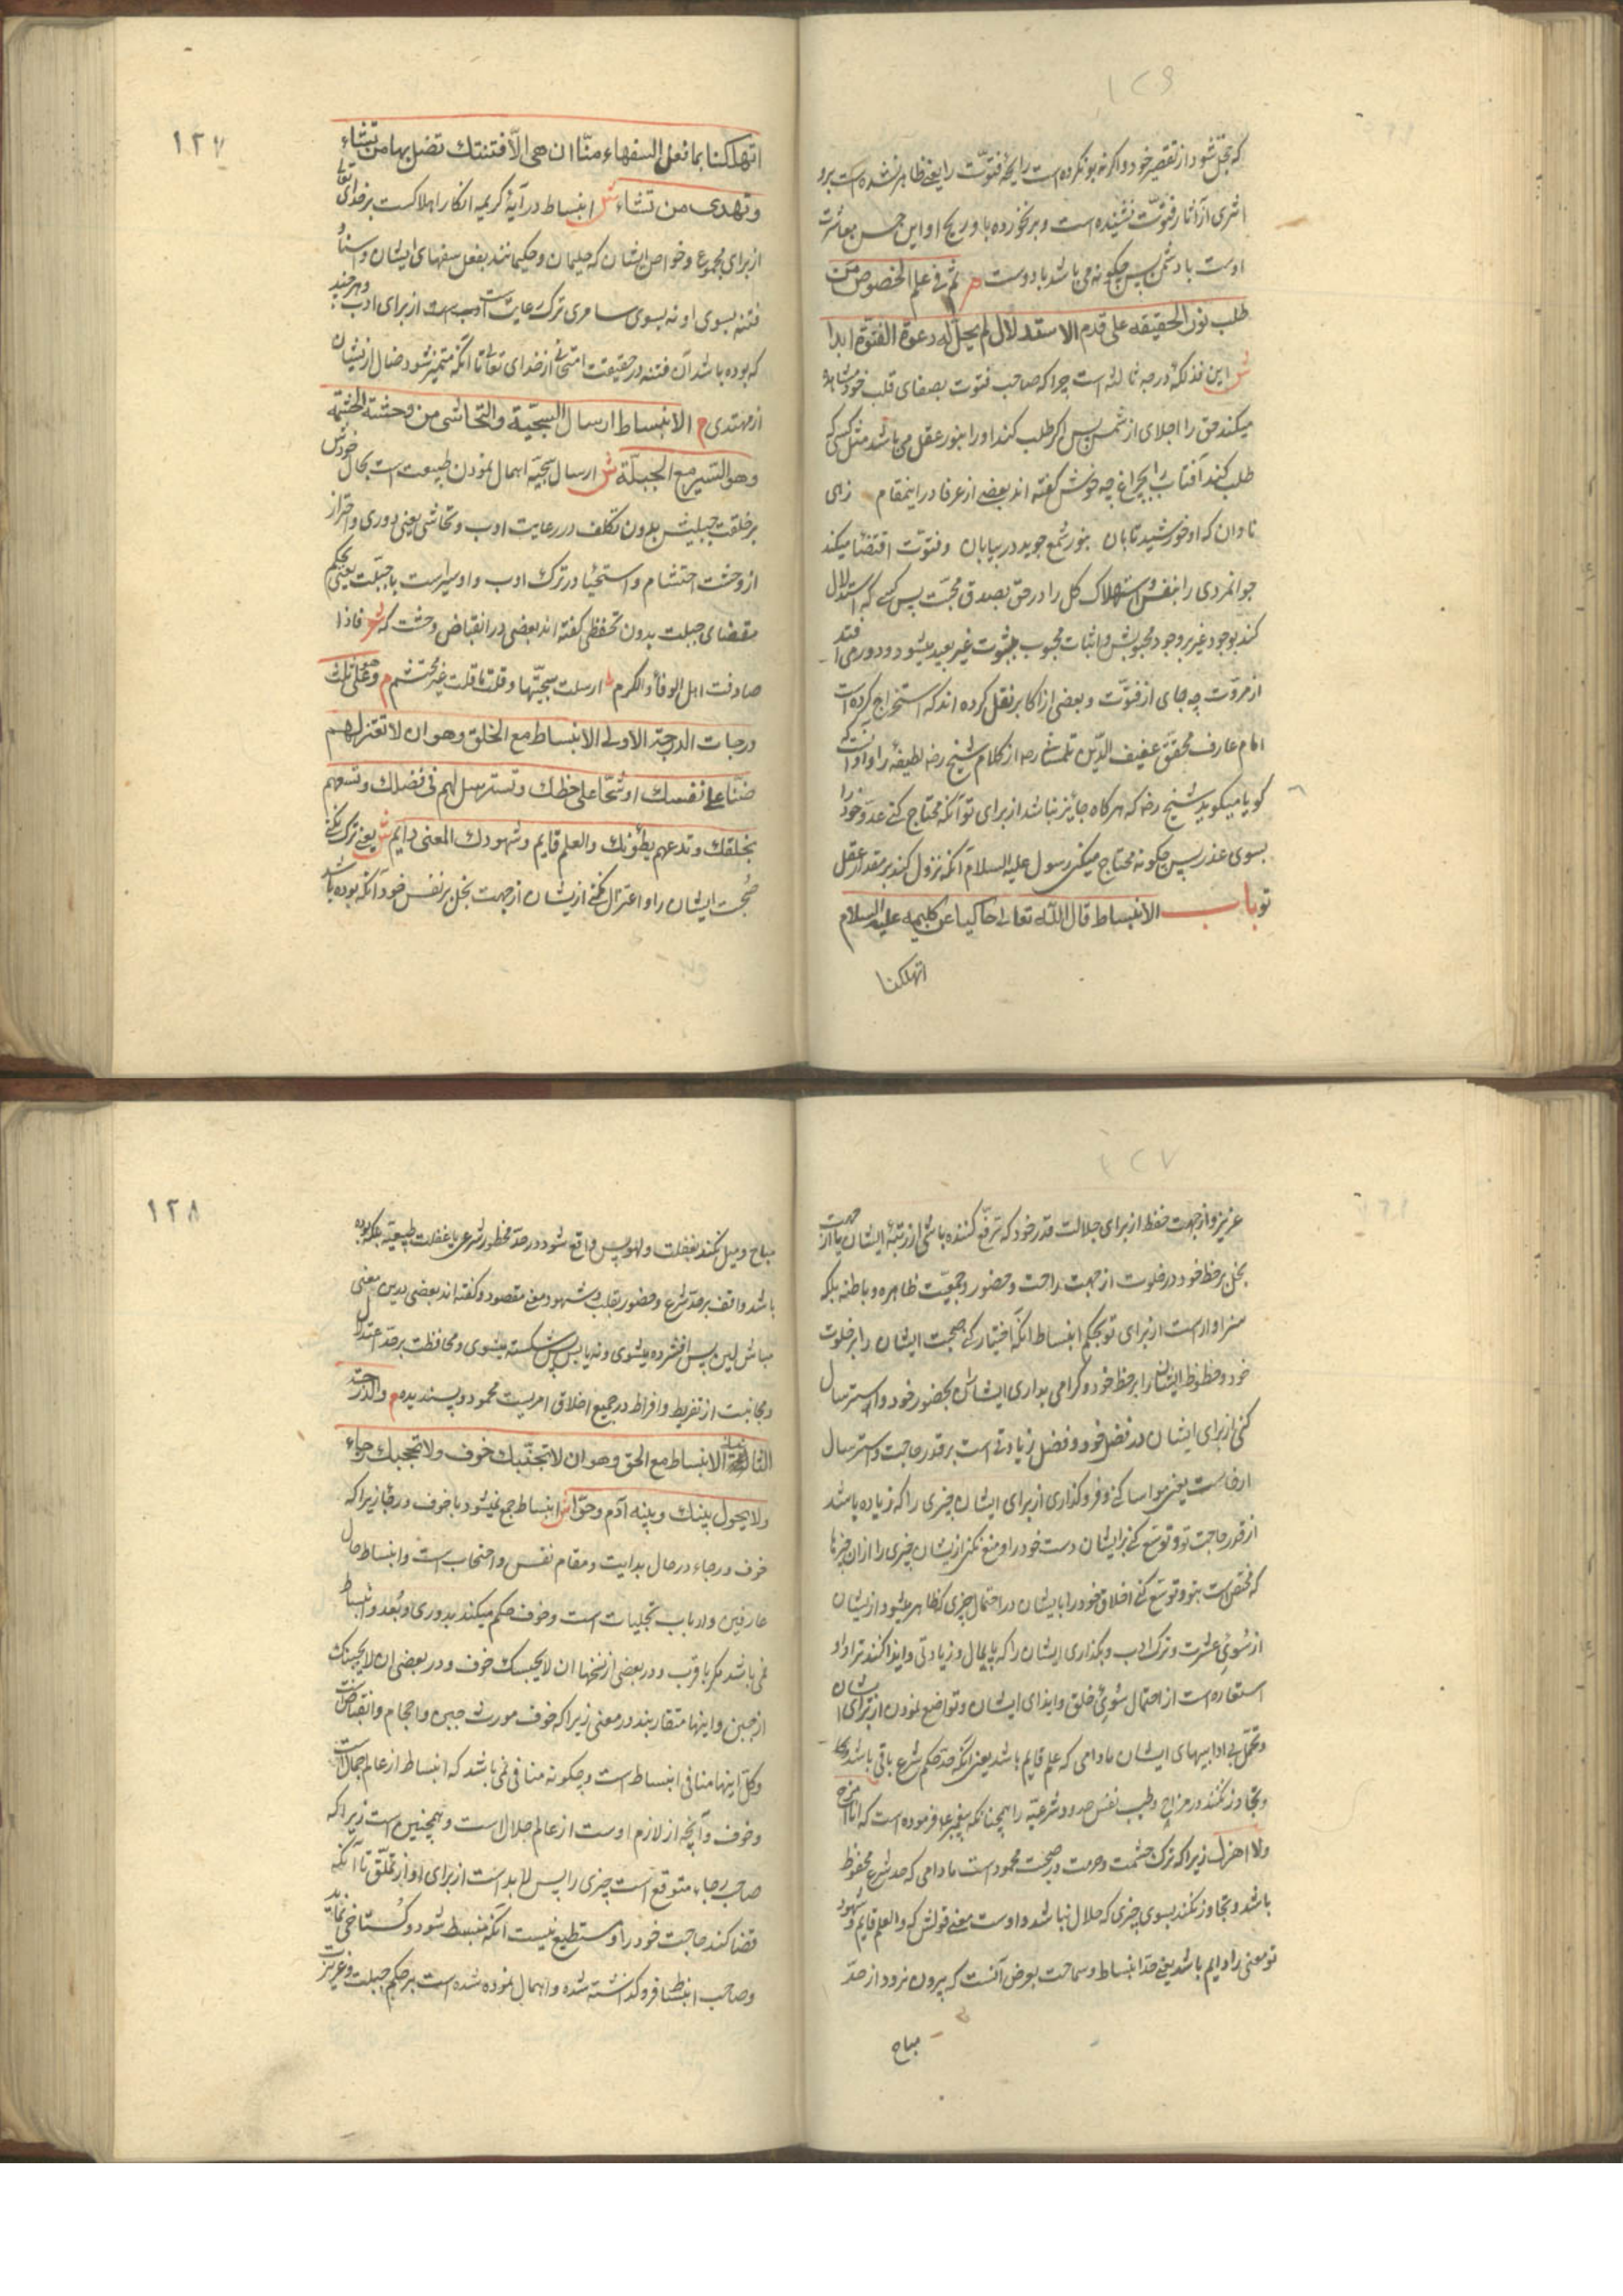 ۱۲۶
که خجل شود از تقصیر خود و اگر نه بو نکرده است رایحهٔ فتوّت را یعنی ظاهر نشده است برو
اثری از آثار فتوّت نشنیده است و برنخورده باو ریح او این حسن معاشرت
اوست با دشمن پس چکونه می باشد با دوست م ثم فی علم الخصوص من
طلب نور الحقیقه علی قدم الاستدلال لم یحل له دعوة الفتوّة ابدا
ش این فذلکهٔ درجه ثالثه است چرا که صاحب فتوت بصفای قلب خود مشاهده
میکند حق را اجلای از شمس پس اکر طلب کند او را بنور عقل می باشد مثل کسی که
طلب کند آفتاب را بچراغ چه خوش کفته اند بعضی از عرفا در اینمقام زهی
نادان که او خورشید تابان بنور شمع جوید در بیابان و فتوّت اقتضا میکند
جوانمردی را بنفس و استهلاک کل را در حق بصدق محبّت پس کسی که استدلال
کند بوجود غیر بر وجود محبوبش و اثبات محبوب بثبوت غیر بعید میشود و دور می افتد
از مروّت چه جای از فتوّت و بعضی از اکابر نقل کرده اند که استخراج کرده است
امام عارف محقق عفیف الدّین تلمسانی رحه از کلام شیخ رضه لطیفهٔ را و آن آنست که
کویا میکوید شیخ رضه که هرکاه جایز نباشد از برای تو آنکه محتاج کنی عدوّ خود را
بسوی عذر پس چکونه محتاج میکنی رسول علیه السلام آنکه نزول کند بر مقدار عقل
تو باب الانبساط قال الله تعالی حاکیا عن کلیمه علیه السلام
اتهلکنا
۱۲۷
اتهلکنا بما فعل السفهاء منّا ان هی الّا فتنتک تضل بها من تشاء
وتهدی من تشاء ش انبساط در آیهٔ کریمه انکار اهلاکست بر خدای تعالی
از برای مجموع و خواص ایشان که حلیمان و حکیمانند بفعل سفهای ایشان و اسناد
فتنه بسوی او نه بسوی سامری ترک رعایت ادب است از برای ادب و هر چند
که بوده باشد آن فتنه در حقیقت امتحانی از خدای تعالی تا آنکه متمیز شود ضال از ایشان
از مهتدی م الانبساط ارسال السجیّة والتحاشی من وحشة الحشمة
وهو السّیر مع الجبلّة ش ارسال سجیّه اهمال نمودن طبیعت است بحال خودش
بر خلقت جبلیش بدون تکلف در رعایت ادب و تحاشی یعنی دوری و احتراز
از وحشت احتشام و استحیا در ترک ادب و او سیرست با جبّلت یعنی بحکم
مقتضای جبلت بدون تحفظی کفته اند بعضی در انقباض وحشت که شعر فاذا
صادفت اهل الوفاء والکرم ارسلت سجیّتها وقلت ما قلت غیر محتشم م وهی علی ثلث
درجات الدرجة الاولی الانبساط مع الخلق وهو ان لا تعتزلهم
ضنّا علی نفسک او شحّا علی حظک وتسترسل لهم فی فضلک وتسعهم
بخلقک وتدعهم یطئونک والعلم قایم وشهودک المعنی دایم ش یعنی ترک نکنی
صحبت ایشان را و اعتزال نکنی ازیشان از جهت بخل بر نفس خود آنکه بوده باشد
۱۲۷
عزیز و از جهت حفظ از برای جلالت قدر خود که ترفّع کننده باشی از رتبهٔ ایشان یا از جهت
بخل بر حظ خود در خلوت از جهت راحت و حضور و جمعیّت ظاهره و باطنه بلکه
سزاوار است از برای تو بحکم انبساط آنکه اختیار کنی صحبت ایشان را بر خلوت
خود و حظوظ ایشان را بر حظ خود و کرامی بداری ایشان بحضور خود و استرسال
کنی از برای ایشان در فضل خود و فضل زیادتی است بر قدر حاجت و استرسال
ارخاست یعنی مواسا کنی و فروکذاری از برای ایشان چیزی را که زیاده باشد
از قدر حاجت تو و توسّع کنی بر ایشان دست خود را و منع نکنی ازیشان چیزی را از آن چیزها
که مختص است بتو و توسّع کنی اخلاق خود را با ایشان در احتمال چیزی که ظاهر میشود ازیشان
از سُوءِ عشرت و ترک ادب و بکذاری ایشان را که پایمال و زیادتی و ایذا کنند ترا و او
استعاره است از احتمال سُوءِ خلق و ایذای ایشان و تواضع نمودن از برای ایشان
و تحمّل بی ادابیهای ایشان مادامی که علم قایم باشد یعنی آنکه حدّ حکم شرع باقی باشد
و تجاوز نکند در مزاح و طیب نفس حدود شرعیّه را همچنانکه پیغمبر ع فرموده است که انا امزح
ولا اهزل زیرا که ترک حشمت و حرمت در صحبت محمود است مادامی که حد شرع محفوظ
باشد و تجاوز نکند بسوی چیزی که حلال نباشد و اوست معنی قولش که والعلم قایم و شهود
تو معنی را دایم باشد یعنی حدّ انبساط و سماحت بعرض آنست که بیرون نرود از حدّ
مباح
۱۲۸
مباح و میل نکند بغفلت و لهو پس واقع شود در حدّ محظور شرعی یا غفلت طبیعیّه بلکه بوده
باشد واقف بر حدّ شرع و حضور بقلب و شهود معنی مقصود و کفته اند بعضی درین معنی
مباش لین پس افشرده میشوی و نه یابس پس شکسته میشوی و محافظت بر حدّ اعتدال
و مجانبت از تفریط و افراط در جمیع اخلاق امریست محمود و پسندیده م والدّرجة
الثانیة الانبساط مع الحق وهو ان لا تجنّبک خوف ولا تحجبک رجاء
ولا یحول بینک وبینه آدم وحوّا ش انبساط جمع نمیشود با خوف و رجا زیرا که
خوف و رجاء در حال بدایت و مقام نفس و احتجاب است و انبساط حال
عارفین و ارباب تجلیات است و خوف حکم میکند بدوری و بُعد و انبساط
نمی باشد مکر با قرب و در بعضی از نسخها ان لا یحبسک خوف و در بعضی ان لا یجبنک
از جبن و اینها متقاربند در معنی زیرا که خوف مورث جبن و احجام و انقباض است
و کل اینها منافی انبساط است و چکونه منافی نمی باشد که انبساط از عالم جمال است
و خوف و آنچه از لازم اوست از عالم جلال است و همچنین است زیرا که
صاحب رجاء متوقع است چیزی را پس لابد است از برای او از تملّق تا آنکه
قضا کند حاجت خود را و مستطیع نیست آنکه منبسط شود و کستاخی نماید
و صاحب انبساط فروکذاشته شده و اهمال نموده شده است بر حکم جبلت و غریزت